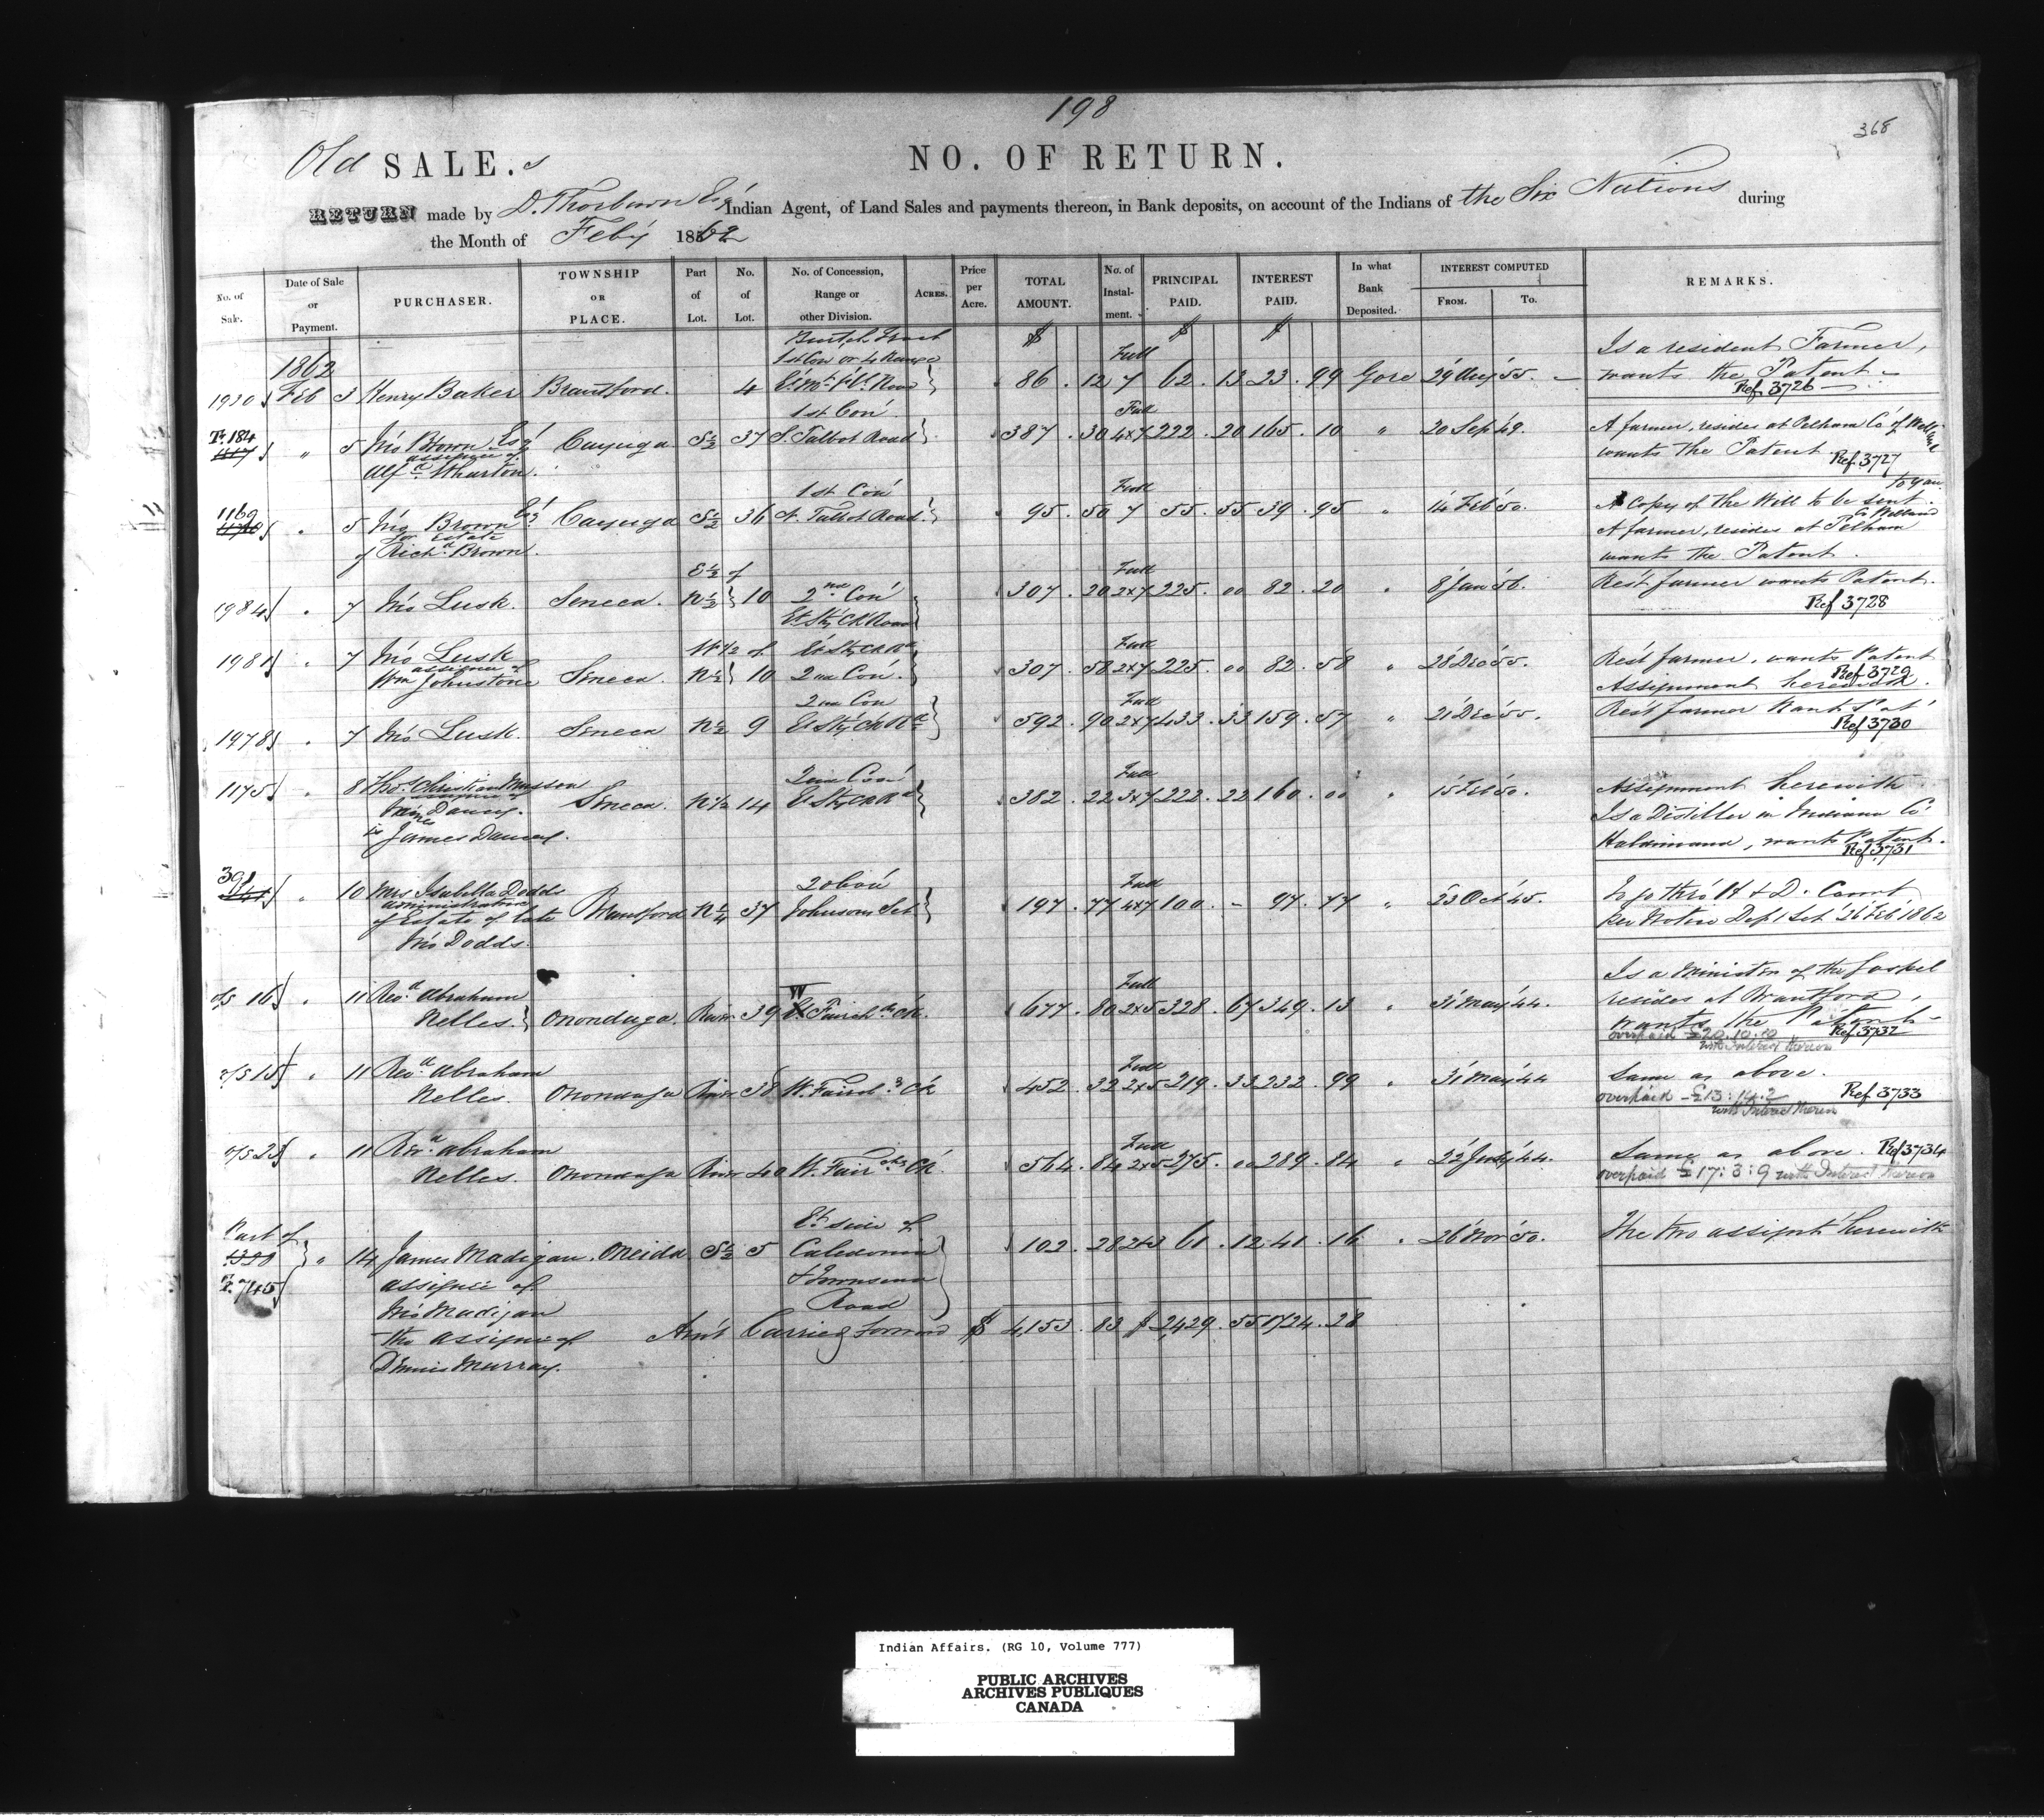 198
368
Old SALE.s
NO. OF RETURN.
RETURN made by D. Thorburn Esqr Indian Agent, of Land Sales and payments thereon, in Bank deposits, on account of the Indians of the Six Nations during
the Month of Feby 1862
No. of Sale. Date of Sale or Payment. PURCHASER. TOWNSHIP OR PLACE. Part of Lot. No. of Lot. No. of Concession, Range or other Division. ACRES. Price per Acre. TOTAL AMOUNT. No. of Instal-ment. PRINCIPAL PAID. INTEREST PAID. In what Bank Deposited. INTEREST COMPUTED FROM. To. REMARKS.
$ $ $
1862
1st Con or 4 Range Full Is a resident Farmer,
Feb 3 Henry Baker Brantford. 4 Road 86 . 12 7 62 . 13 23 . 99 Gore 29 Aug '55. wants the Patent
Ref 3726
1st Con Full
184 " 5 Jno Brown Esqr Cayuga S½ 37 S. Talbot Road 387 . 30 4x7 222 . 20 165 . 10 " 20 Sep '49. A farmer, resides at Pelham Co of Welland
assignee of wants the Patent Ref 3727
Alfd Wharton.
1st Con Full to you
1169 " 5 Jno Brown Esqr Cayuga S½ 36 N. Talbot Road 95 . 50 7 55 . 55 39 . 95 " 14 Feb '50. A Copy of the Will to be sent.
for Estate A farmer, resides at Pelham Co Welland
of Richd Brown. wants the Patent.
E½ of Full
1984 " 7 Jno Lusk. Seneca. N½ 10 2nd Con 307 . 20 2x7 225 . 00 82 . 20 " 8 Jan '56. Rest farmer wants Patent.
Et Sty Ck Road Ref 3728
W½ of Et Sty Ck Rd Full
1981 " 7 Jno Lusk Seneca. N½ 10 2nd Con 307 . 58 2x7 225 . 00 82 . 58 " 28 Dec '55. Rest farmer, wants Patent
assignee of Ref 3729
Wm Johnstone Assignment herewith.
2nd Con Full
1978 " 7 Jno Lusk. Seneca N½ 9 Et Sty Ck Rd 592 . 90 2x7 433 . 33 159 . 57 " 21 Dec '55. Rest farmer Wants Pat
Ref 3730
2nd Con Full
1175 " 8 Thos Christian Musson Seneca. N½ 14 Et Sty Ck Rd 382 . 22 3x7 222 . 22 160 . 00 " 15 Feb '50. Assignment herewith
assignee of Is a Distiller in Indiana Co
James Dancy. Haldimand, wants Patent.
James Dancy. Ref 3731
2d Con Full
10 Mrs Isabella Dodds Brantford N¼ 37 Johnson Set 197 . 77 4x7 100 . - 97 . 77 " 23 Oct '45. To go thro' H & D. Court
administratrix per Notice Dept Let 26 Feb 1862
of Estate of late
Jno Dodds.
Full Is a Minister of the Gospel
16 " 11 Revd Abraham Onondaga. River 39 W Fairch ds Ck. 677 . 80 2x5 328 . 67 349 . 13 " 31 May '44. resides at Brantford,
Nelles. wants the Patent
Ref 3732
overpaid £20.10.10
with Interest thereon
Full
15 " 11 Revd Abraham Onondaga River 38 W. Fairch ds Ck 452 . 32 2x5 219 . 33 232 . 99 " 31 May '44 Same as above.
Nelles. overpaid £13:14.2 Ref 3733
with Interest thereon
Full
23 " 11 Revd Abraham Onondaga River 40 W. Fairchds Ck 564 . 84 2x5 275 . 00 289 . 84 " 22 July '44. Same as above. Ref 3734
Nelles. overpaid £17:3:9 with Interest thereon
Part of Et side of
" 14 James Madigan. Oneida S½ 5 Caledonia 102 . 28 2x3 61 . 12 41 . 16 " 26 Nov '50. The two assignts herewith
745 assignee of & Townsend
Jno Madigan Road
the assignee of Amt Carried Forward $ 4,153 . 83 $ 2429 . 55 1724 . 28
Dennis Murray.
Indian Affairs. (RG 10, Volume 777)
PUBLIC ARCHIVES
ARCHIVES PUBLIQUES
CANADA